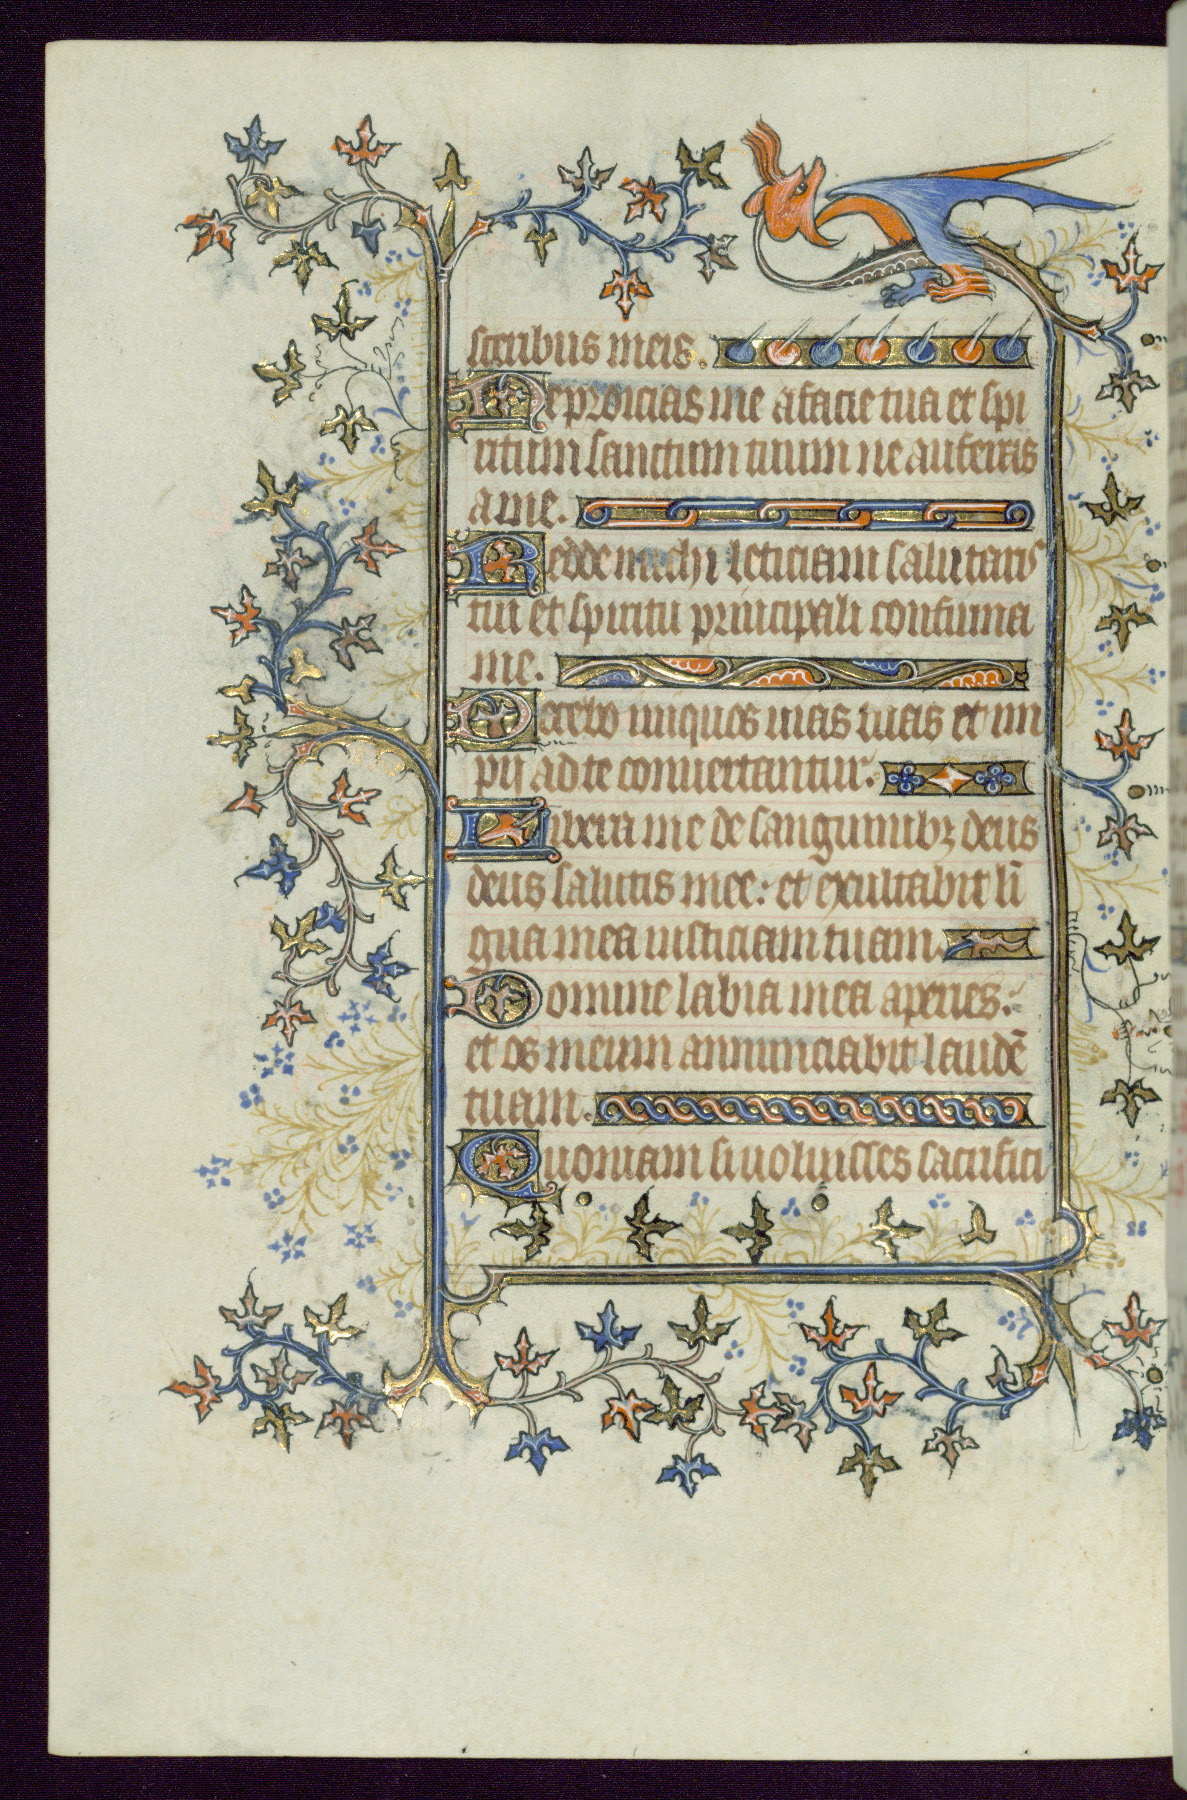 sceribus meis.
Ne proicias me a facie tua et spi
ritum sanctum tuum ne auferas
a me.
Redde michi leticiam salutaris
tui et spiritu principali confirma
me.
Docebo iniquos uias tuas et im
pii ad te conuertantur.
Libera me de sanguinibꝫ deus
deus salutis mee: et exultabit lī
gua mea iusticiam tuam.
Domine labia mea aperies.
et os meum annunciabit laudē
tuam.
Quoniam si uoluisses sacrifici